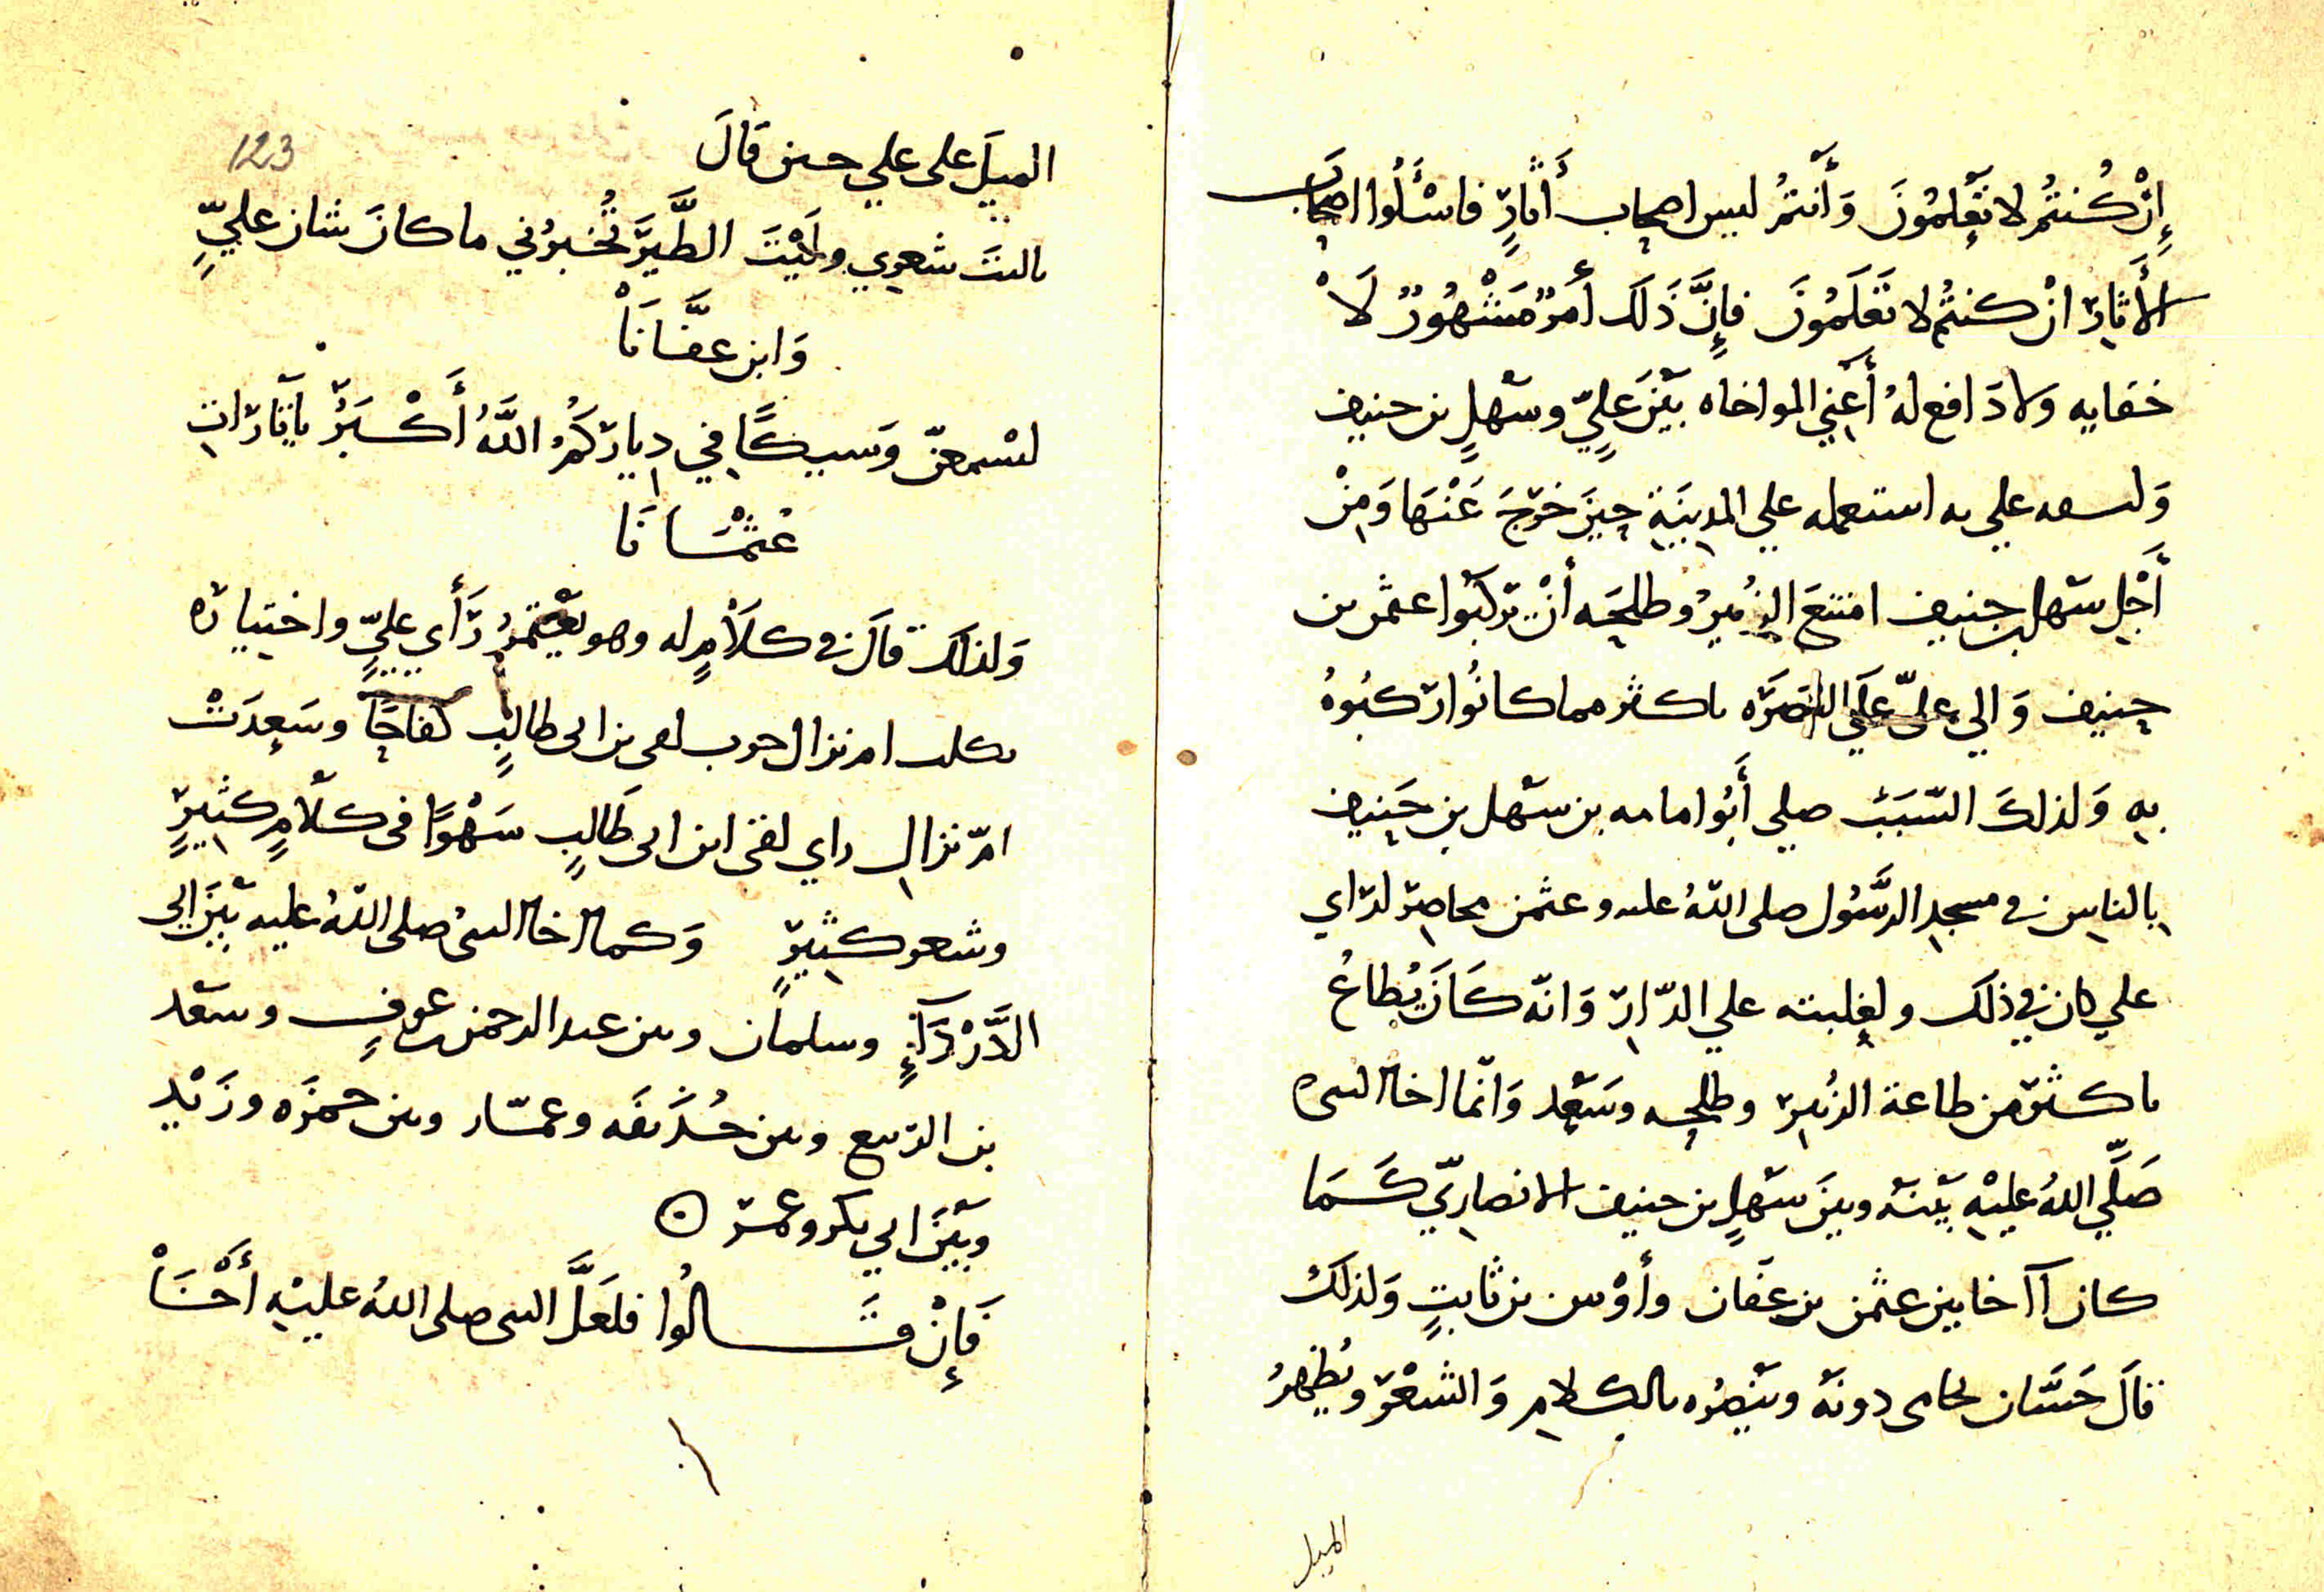 إِنْ كُنتُمْ لا تَعْلَمُونَ وَأَنتُمُ ليس اصحاب أَثارٍ فاسْئَلُوا اصحابَ
الأَثارِ انْ كنتُم لا تَعْلَمُونَ فإِنَّ ذَلَك أمرٌ مَشْهُورٌ لَاْ
خفايه وَلا دَافع لهُ أَعْنِي المواخاه بَيْنَ عَلِيٍّ وسَهْلٍ بن حنيف
علي به استعمله علي المدِينَةِ حِينَ خرَجَ عَنْهَا وَمِنْ
أَجْلِ سَهْل بن حنيف امتنعَ الزُبيرُ وطلحَه أنْ يَركَبُوا عثمٰن بن
حنيف وَالي علىّ عَلَي البَصرَه باكثر مما كانُوا رَكبُوهُ
بِهِ وَلذلكَ السّبَبَ صلي أَبُوا مامه بن سَهْل بن حَنِيف
بِالناسِ في مسجدِ الرَّسُول صلى اللّهُ عليه وعثمٰن محاصِرٌ لرَاي
علي كان في ذلكَ ولغلبته علي الدّارِ وَانّه كَانَ يُطاعُ
باكثرَ من طاعة الزُبير وطلحه وسَعْدٍ وَانّما اخا النبى
صَلَّي اللهُ عَليْهِ بَيْنَهُ وبينَ سَهْلٍ بن حنيف الانصارِيّ كَمَا
كان آخا بين عثمٰن بن عفّان وأوْس بن ثابتٍ وَلذلكَ
قالَ حَسّان يحامى دونَهُ ويَنْصُرُه بالكلامِ وَالشعْر ويُظهِرُ
الميل
123
الميلَ على علي حين قَالَ
يا ليتَ شعرِي ولَيْتَ الطَّيرَ تُخبرُني ما كانَ شان عليٍّ
وَابن عفَّانَاْ
لتسْمعنّ وَشيكًا في دِيارَكُمُ اللَّهُ أَكْبَرُ يا ثارَاتِ
عُثْمَانَا
وَلذلكَ قالَ في كلَامٍ له وهو يعْتمرُ رَأَي عليٍّ واختيارَه
نزال حرب لقى بن ابى طالبٍ كفاحًا وسَعِدَتْ
امّ نزال راي لقى ابن ابى طَالبٍ سَهْوًا فى كلَامٍ كثيرٍ
وشعرٍ كثيرٍ وَكما اخا النبى صلى اللّهُ عليه بَيْنَ ابي
الدَّرْدَآءِ وسلمان وبين عبد الرحمٰن بن عوفٍ وسَعْد
بن الربيع وبين حُذيفَه وعمّار وبين حمزَه وزَيْدٍ
وبَيْنَ ابي بكر وعمر
فَإِنْ قَالُوا فلعَلَّ النبى صلى اللهُ عليْهِ أَخَاْ